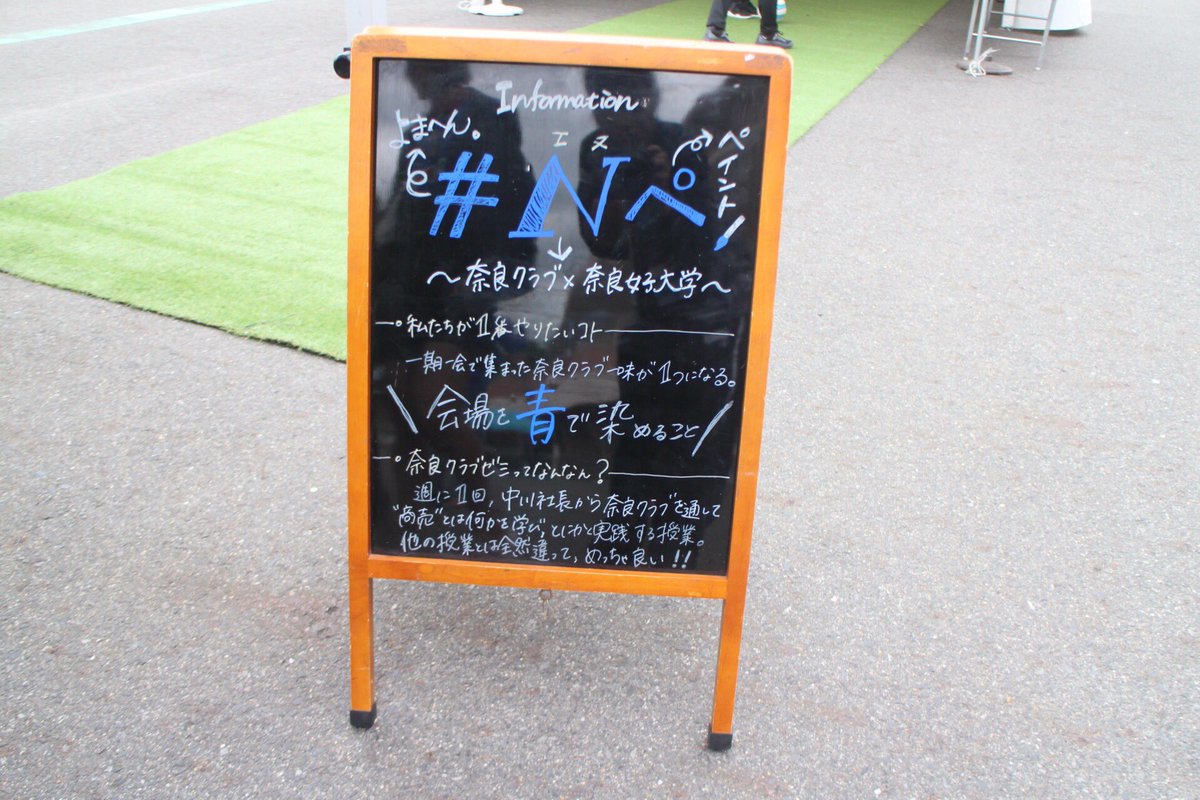 Information
よまへん。
エヌ
ペイント
#Nペ
〜奈良クラブ×奈良女子大学〜
私たちが1番やりたいコト
一期一会で集まった奈良クラブ一味が1つになる。
会場を青で染めること
奈良クラブゼミってなんなん?
週に1回、中川社長から奈良クラブを通して
"商売"とは何かを学び、とにかく実践する授業。
他の授業とは全然違って、めっちゃ良い!!